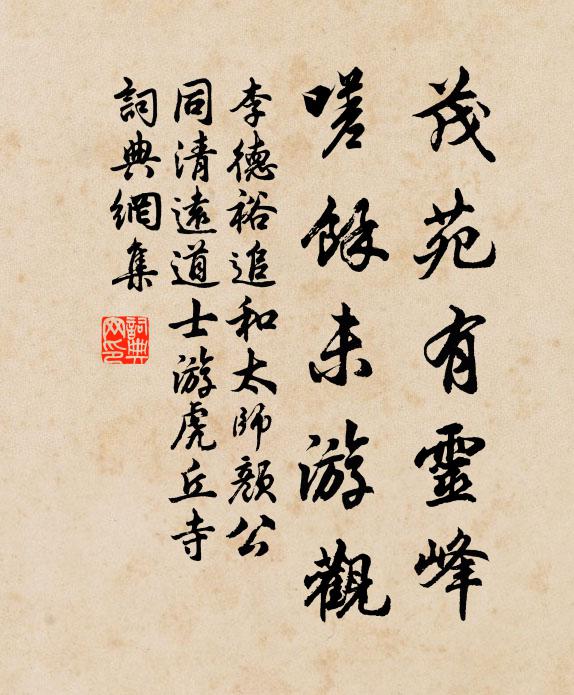 茂苑有靈峰
嗟餘未游觀
李德裕追和太師顏公
同清遠道士游虎丘寺
詞典網集
詞典
网印